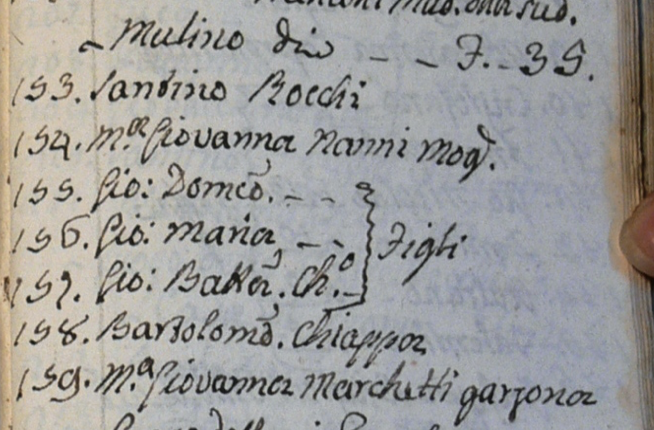 Mulino dio - - F. - 35.
153. Santino Rocchi
154. M.a Giovanna Nanni mog.
155. Gio: Domco. - -
156. Gio: Maria, - - } Figli
157. Gio: Batta. Ch.o -
158. Bartolomo. Chiappa
159. M.a Giovanna Marchetti garzona